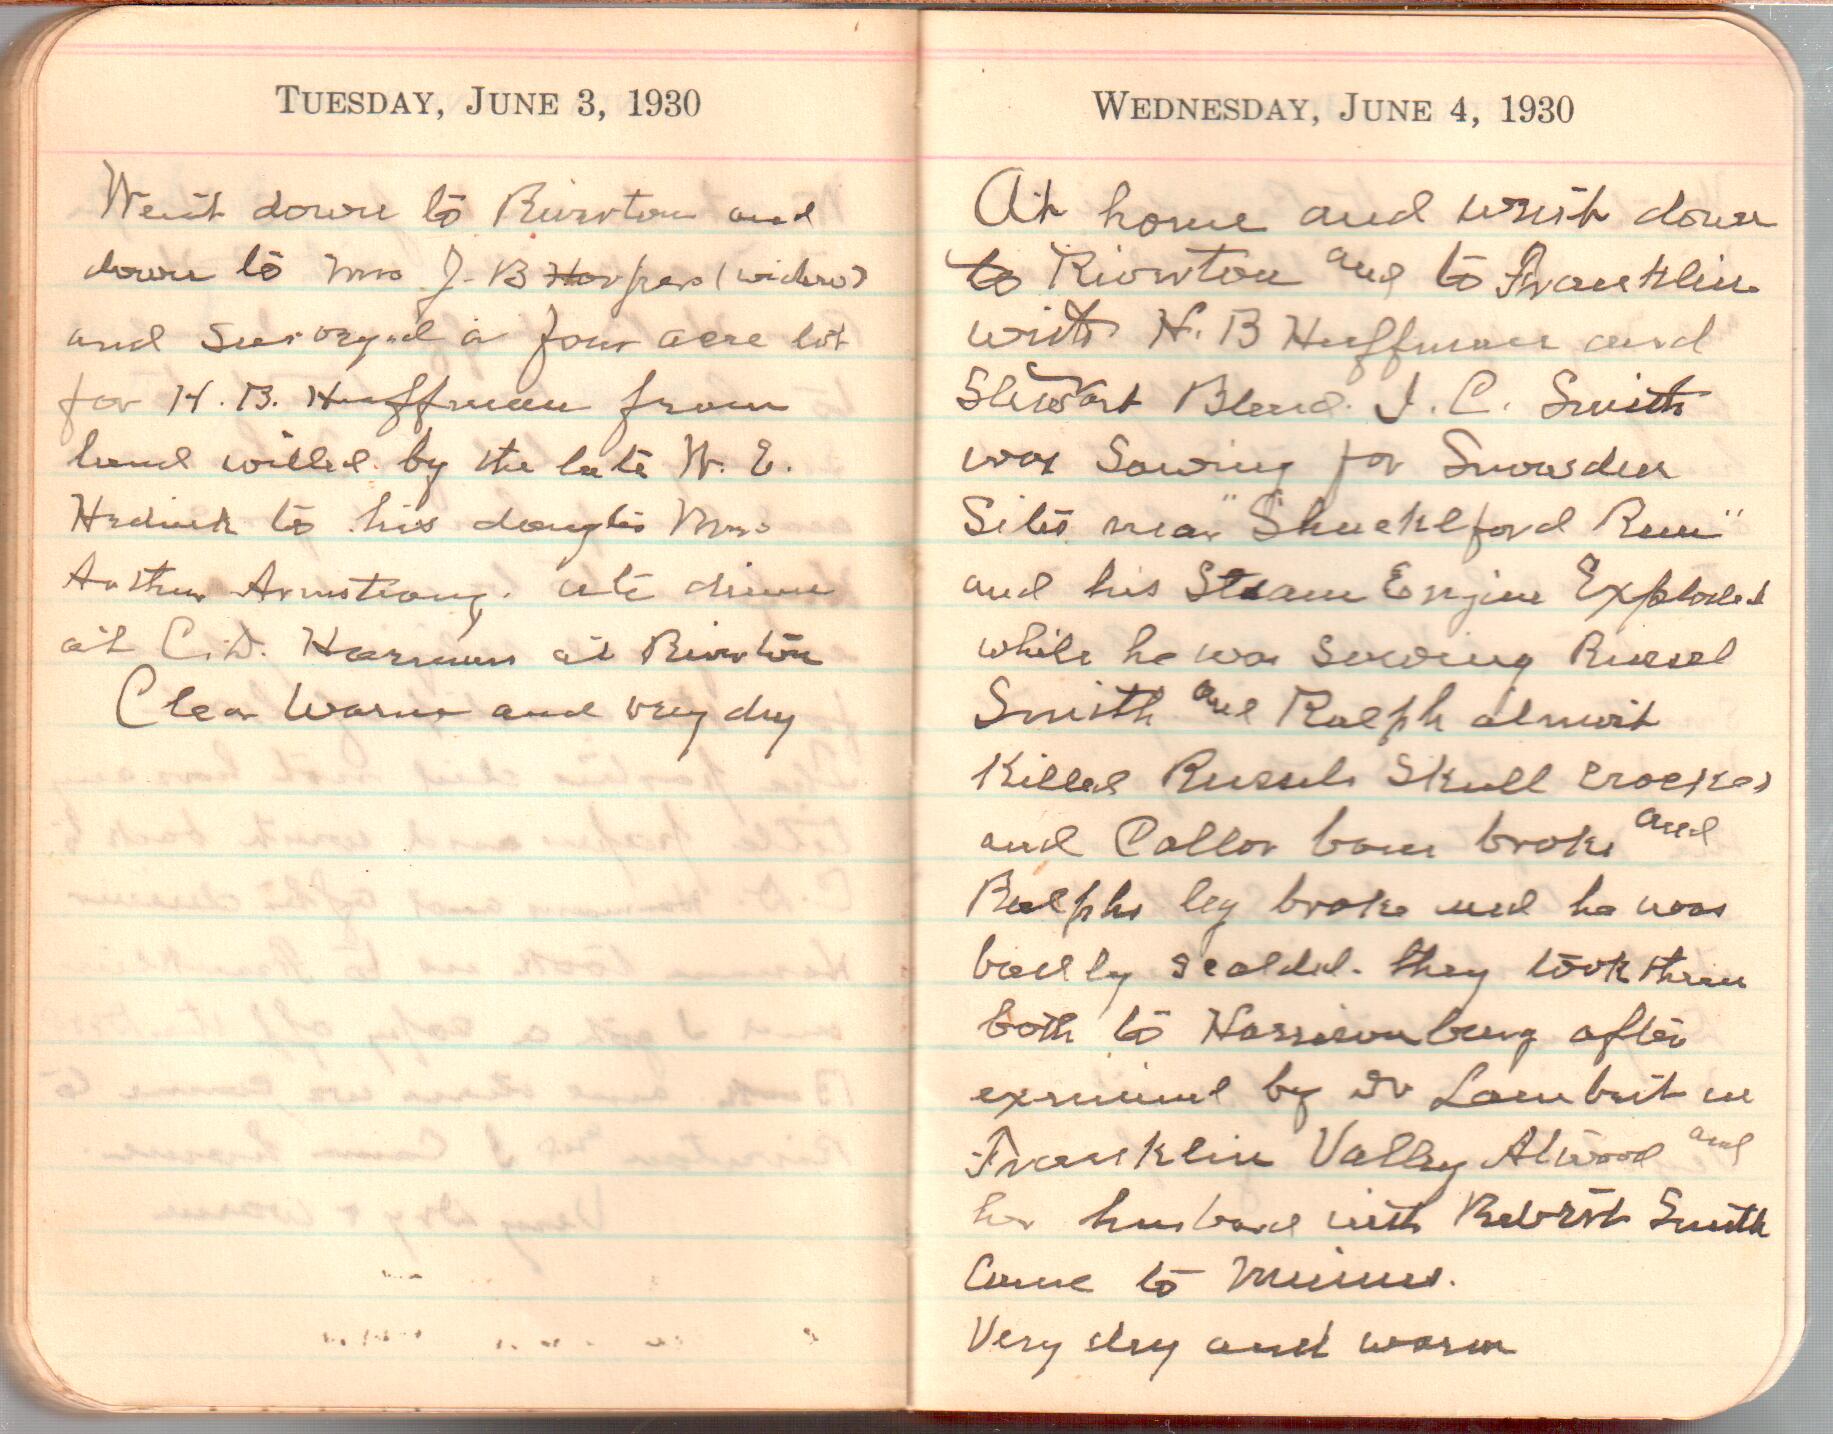 TUESDAY, JUNE 3, 1930
Went down to Riverton and
down to Mrs J. B Harpers (widow)
and Surveyed a four acre lot
for H. B. Huffman from
land willed by the late W. E.
Hedrick to his daughter Mrs
Arthur Armstrong. ate dinner
at C. D. Harmans at Riverton
Clear Warm and very dry
WEDNESDAY, JUNE 4, 1930
At home and went down
to Riverton and to Franklin
with H. B Huffman and
Stewart Bland. J. C. Smith
was Sawing for Snowden
Sites near "Shuckelford Run"
and his Steam Engine Exploded
while he was Sawing Russel
Smith and Ralph almost
Killed Russels Skull cracked
and Collor bone broke and
Ralphs leg broke and he was
badly scalded. they took them
both to Harrisonburg after
examined by Dr Lambert in
Franklin Valley Atwood and
her husband with Robert Smith
Came to
Very dry and warm